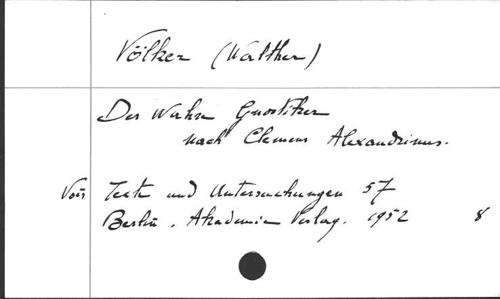 Völker (Walther)
Der Wahre Gnostiker
nach Clemens Alexandrinus.
Voir Texte und Untersuchungen 57
Berlin, Akademie Verlag. 1952 8